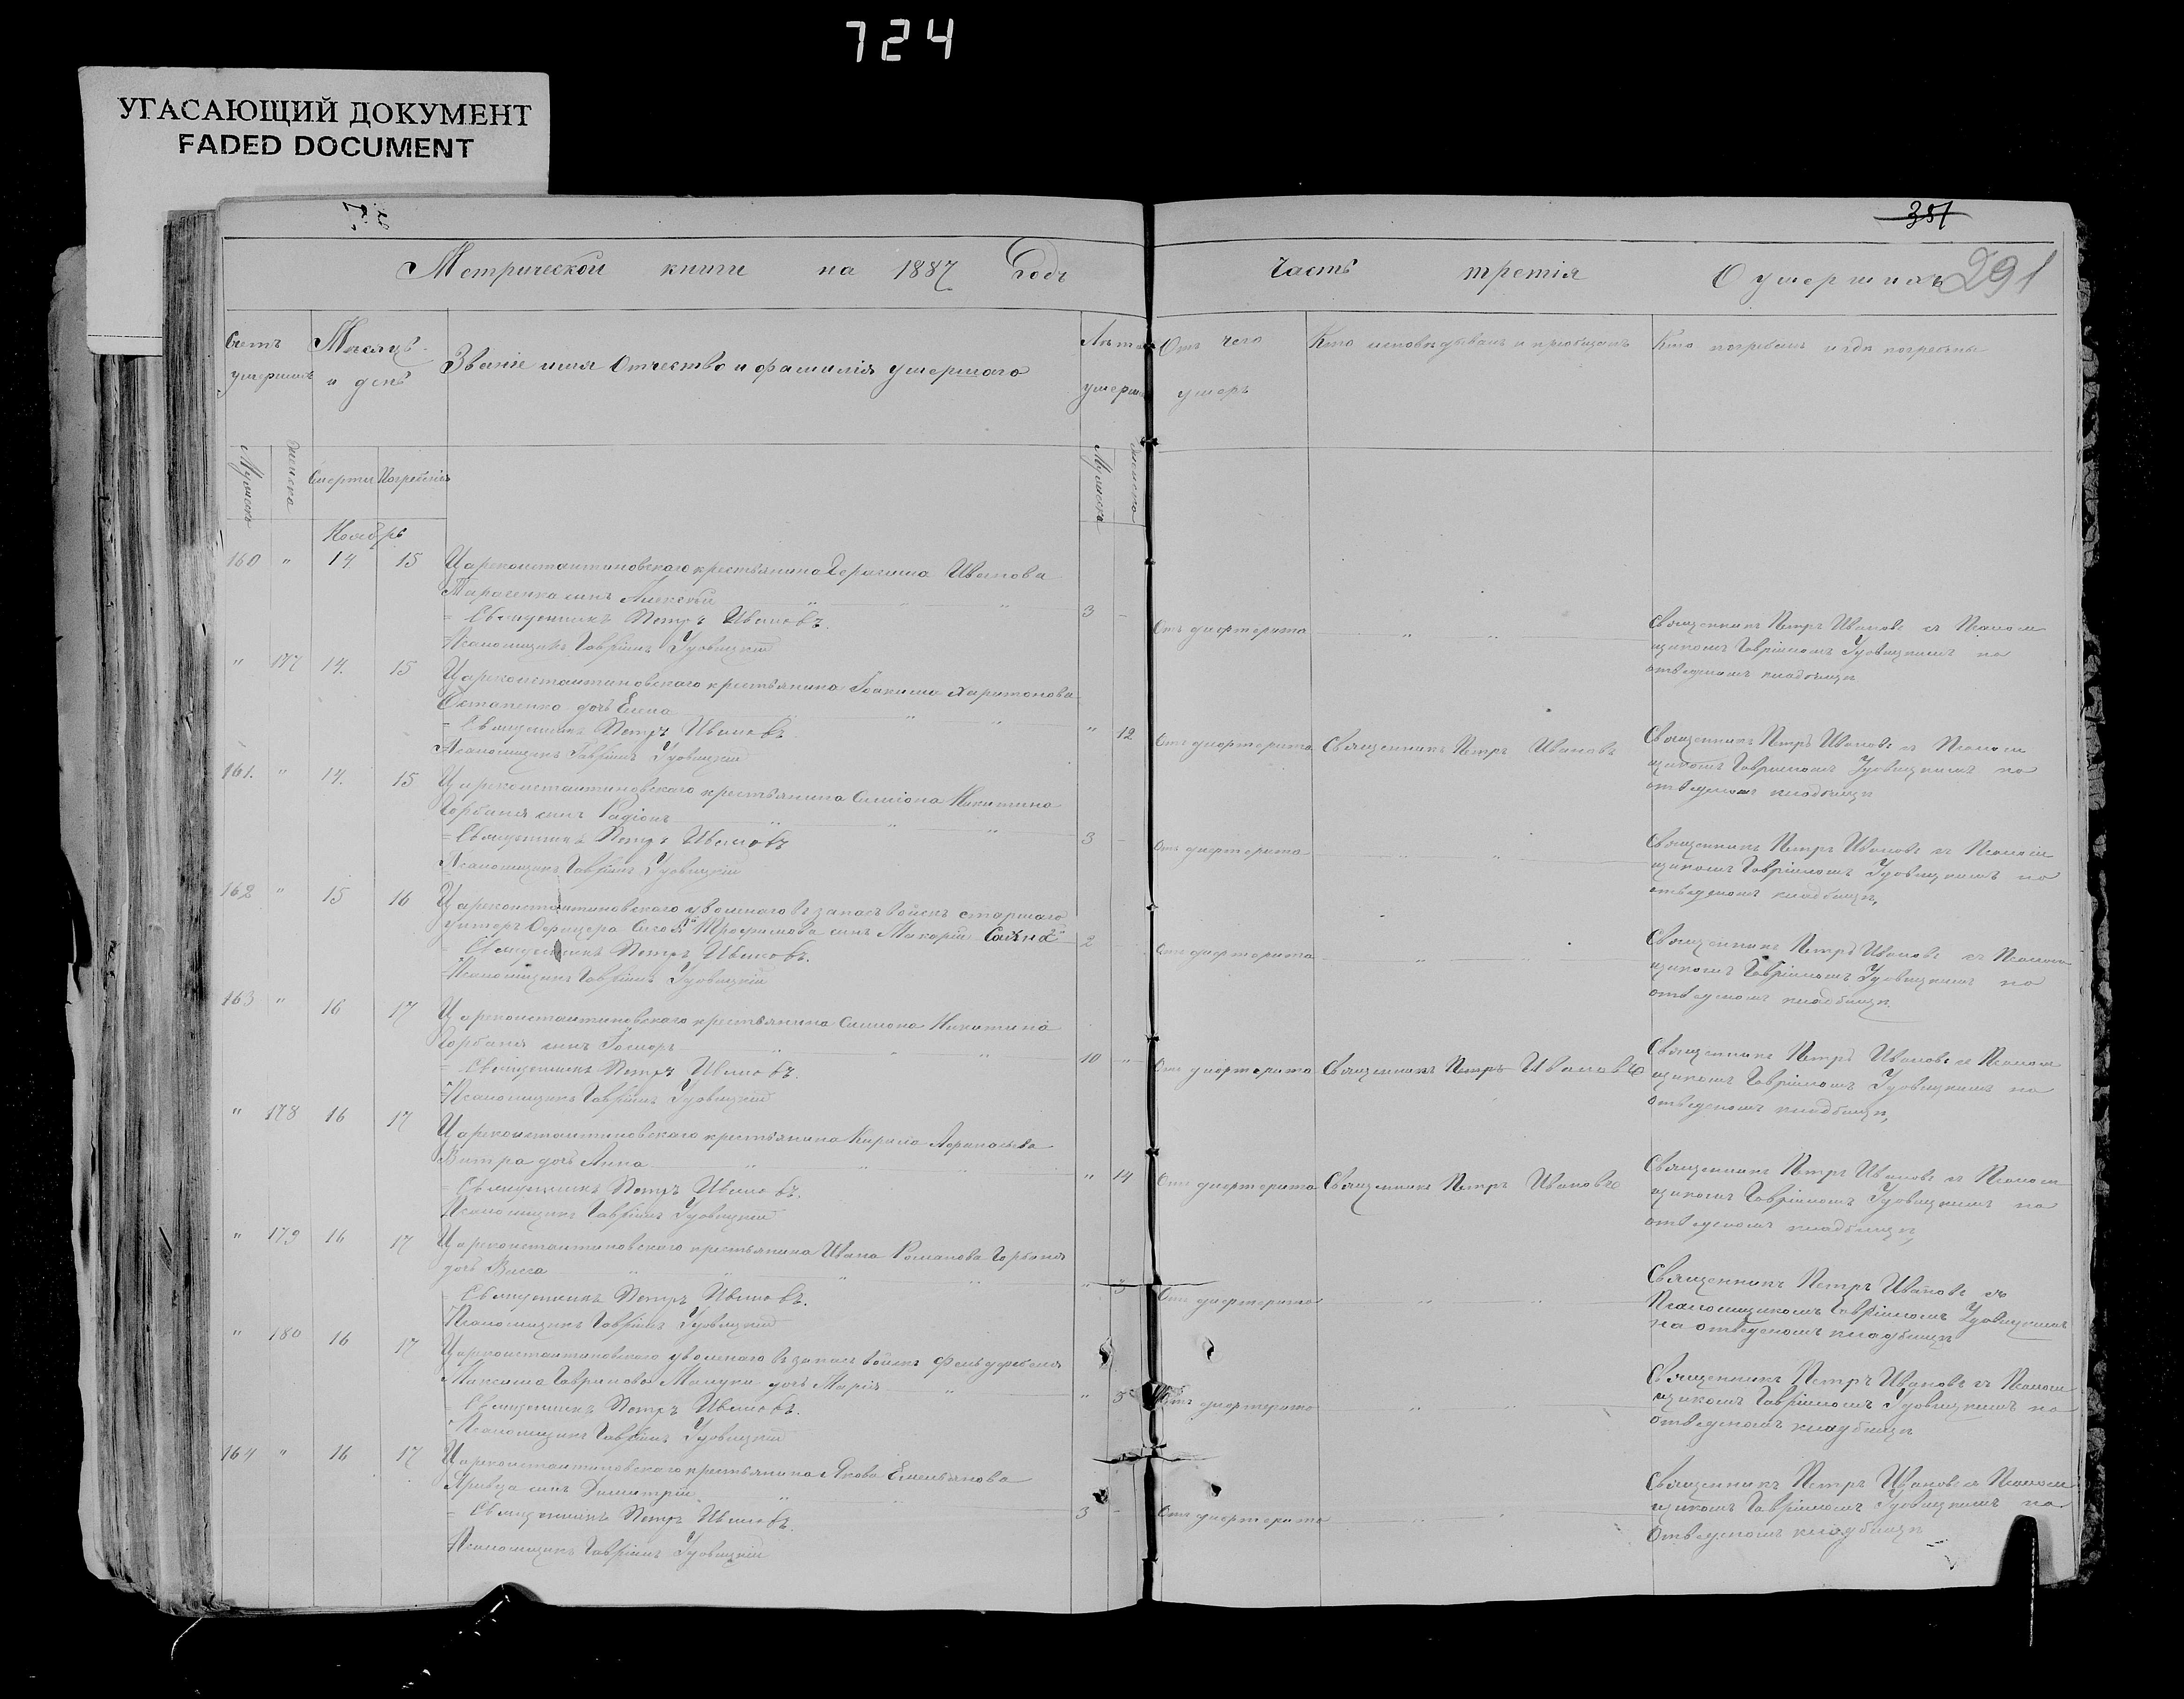 724
УГАСАЮЩИЙ ДОКУМЕНТ
FADED DOCUMENT
351
291
Метрической книги на 1887 Годъ
Часть третія О умершихъ
Счетъ умершихъ
Мѣсяцъ и день
Званіе имя Отчество и фамилія умершаго
Лѣта умерш
Отъ чего умеръ
Кто исповѣдывалъ и пріобщалъ
Кто погребалъ и гдѣ погребены
Мужеска
Женска
Смерти
Погребенія
Мужеска
Женска
Ноябрь
160 " 14 15 Цареконстантиновскаго крестьянина Герасима Иванова
Тарасенка сынъ Алексѣй 3 -
Священникъ Петръ Ивановъ.
Псаломщикъ Гавріилъ Удовицкій
Отъ дифтерита
Священникъ Петръ Ивановъ съ Псалом
щикомъ Гавріиломъ Удовицкимъ на
отведеномъ кладбищѣ
" 177 14. 15 Цареконстантиновскаго крестьянина Іоакима Харитонова
Остапенко дочь Елена " 12
Священникъ Петръ Ивановъ
Псаломщикъ Гавріилъ Удовицкій
Отъ дифтерита Священникъ Петръ Ивановъ
Священникъ Петръ Ивановъ съ Псалом
щикомъ Гавріиломъ Удовицкимъ на
отведеномъ кладбищѣ
161. " 14. 15 Цареконстантиновскаго крестьянина Симіона Никитина
Горбаня сынъ Радіонъ 3 -
Священникъ Петръ Ивановъ
Псаломщикъ Гавріилъ Удовицкій
Отъ дифтерита
Священникъ Петръ Ивановъ съ Псалом
щикомъ Гавріиломъ Удовицкимъ на
отведеномъ кладбищѣ,
162 " 15 16 Цареконстантиновского уволенаго въ запасъ войскъ старшаго
унтеръ Офицера Трофимова сынъ Макарій 2
Священникъ Петръ Ивановъ.
Псаломщикъ Гавріилъ Удовицкій
Отъ дифтерита
Священникъ Петръ Ивановъ съ Псалом
щикомъ Гавріиломъ Удовицкимъ на
отведеномъ кладбищѣ
163 " 16 17 Цареконстантиновскаго крестьянина Симиона Никитина
Горбаня сынъ 10 "
Священникъ Петръ Ивановъ.
Псаломщикъ Гавріилъ Удовицкій
Отъ дифтерита Священникъ Петръ Ивановъ
Священникъ Петръ Ивановъ съ Псалом
щикомъ Гавріиломъ Удовицкимъ на
отведеномъ кладбищѣ,
" 178 16 17 Цареконстантиновскаго крестьянина Кирила Афанасьева
Витра дочь Анна " 14
Священникъ Петръ Ивановъ.
Псаломщикъ Гавріилъ Удовицкій
Отъ дифтерита Священникъ Петръ Ивановъ
Священникъ Петръ Ивановъ съ Псалом
щикомъ Гавріиломъ Удовицкимъ на
отведеномъ кладбищѣ,
" 179 16 17 Цареконстантиновскаго крестьянина Ивана Романова Горбаня
дочь Васса " 5
Священникъ Петръ Ивановъ.
Псаломщикъ Гавріилъ Удовицкій
Отъ дифтерита
Священникъ Петръ Ивановъ съ
Псаломщикомъ Гавріиломъ Удовицкимъ
на отведеномъ кладбищѣ
" 180 16 17 Цареконстантиновского уволенаго въ запасъ войскъ Фельдфебеля
Максима Гаврилова дочь Марія " 5
Священникъ Петръ Ивановъ.
Псаломщикъ Гавріилъ Удовицкій
Отъ дифтерита
Священникъ Петръ Ивановъ съ Псалом
щикомъ Гавріиломъ Удовицкимъ на
отведеномъ кладбищѣ
164 " 16 17 Цареконстантиновскаго крестьянина Якова Емельянова
сынъ Димитрій 3 -
Священникъ Петръ Ивановъ.
Псаломщикъ Гавріилъ Удовицкій
Отъ дифтерита
Священникъ Петръ Ивановъ съ Псалом
щикомъ Гавріиломъ Удовицкимъ на
отведеномъ кладбищѣ